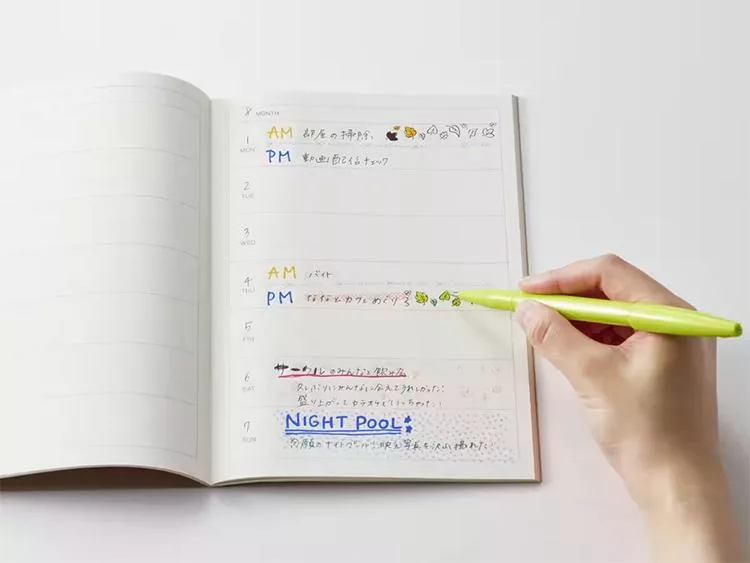 8 MONTH
1 MON
AM 部屋の掃除、
PM 動画配信チェック
2 TUE
3 WED
4 THU
AM バイト
PM ななとカフェめぐり
5 FRI
6 SAT
サークルのみんなと飲み会
久しぶりにみんなに会えてうれしかった!
盛り上がってカラオケも行っちゃった!
7 SUN
NIGHT POOL
念願のナイトプール!映え写真を沢山撮れた!